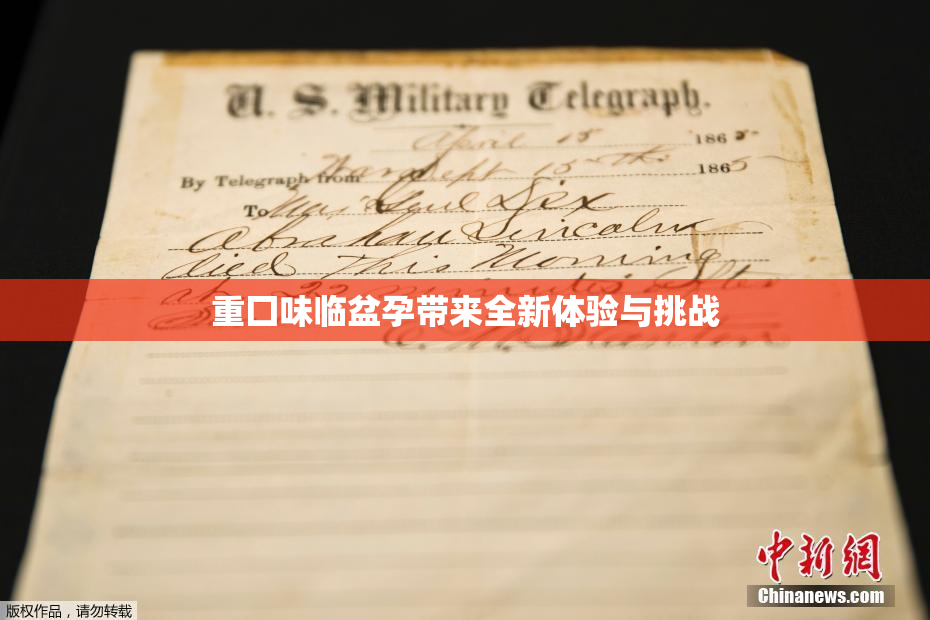 U. S. Military Telegraph.
April 15 1865
By Telegraph from War Dept 15th 1865
To Maj Genl Dix
Abraham Lincoln
died This Morning
at 22 minutes after
重口味临盆孕带来全新体验与挑战
中新網
Chinanews.com
版权作品，请勿转载